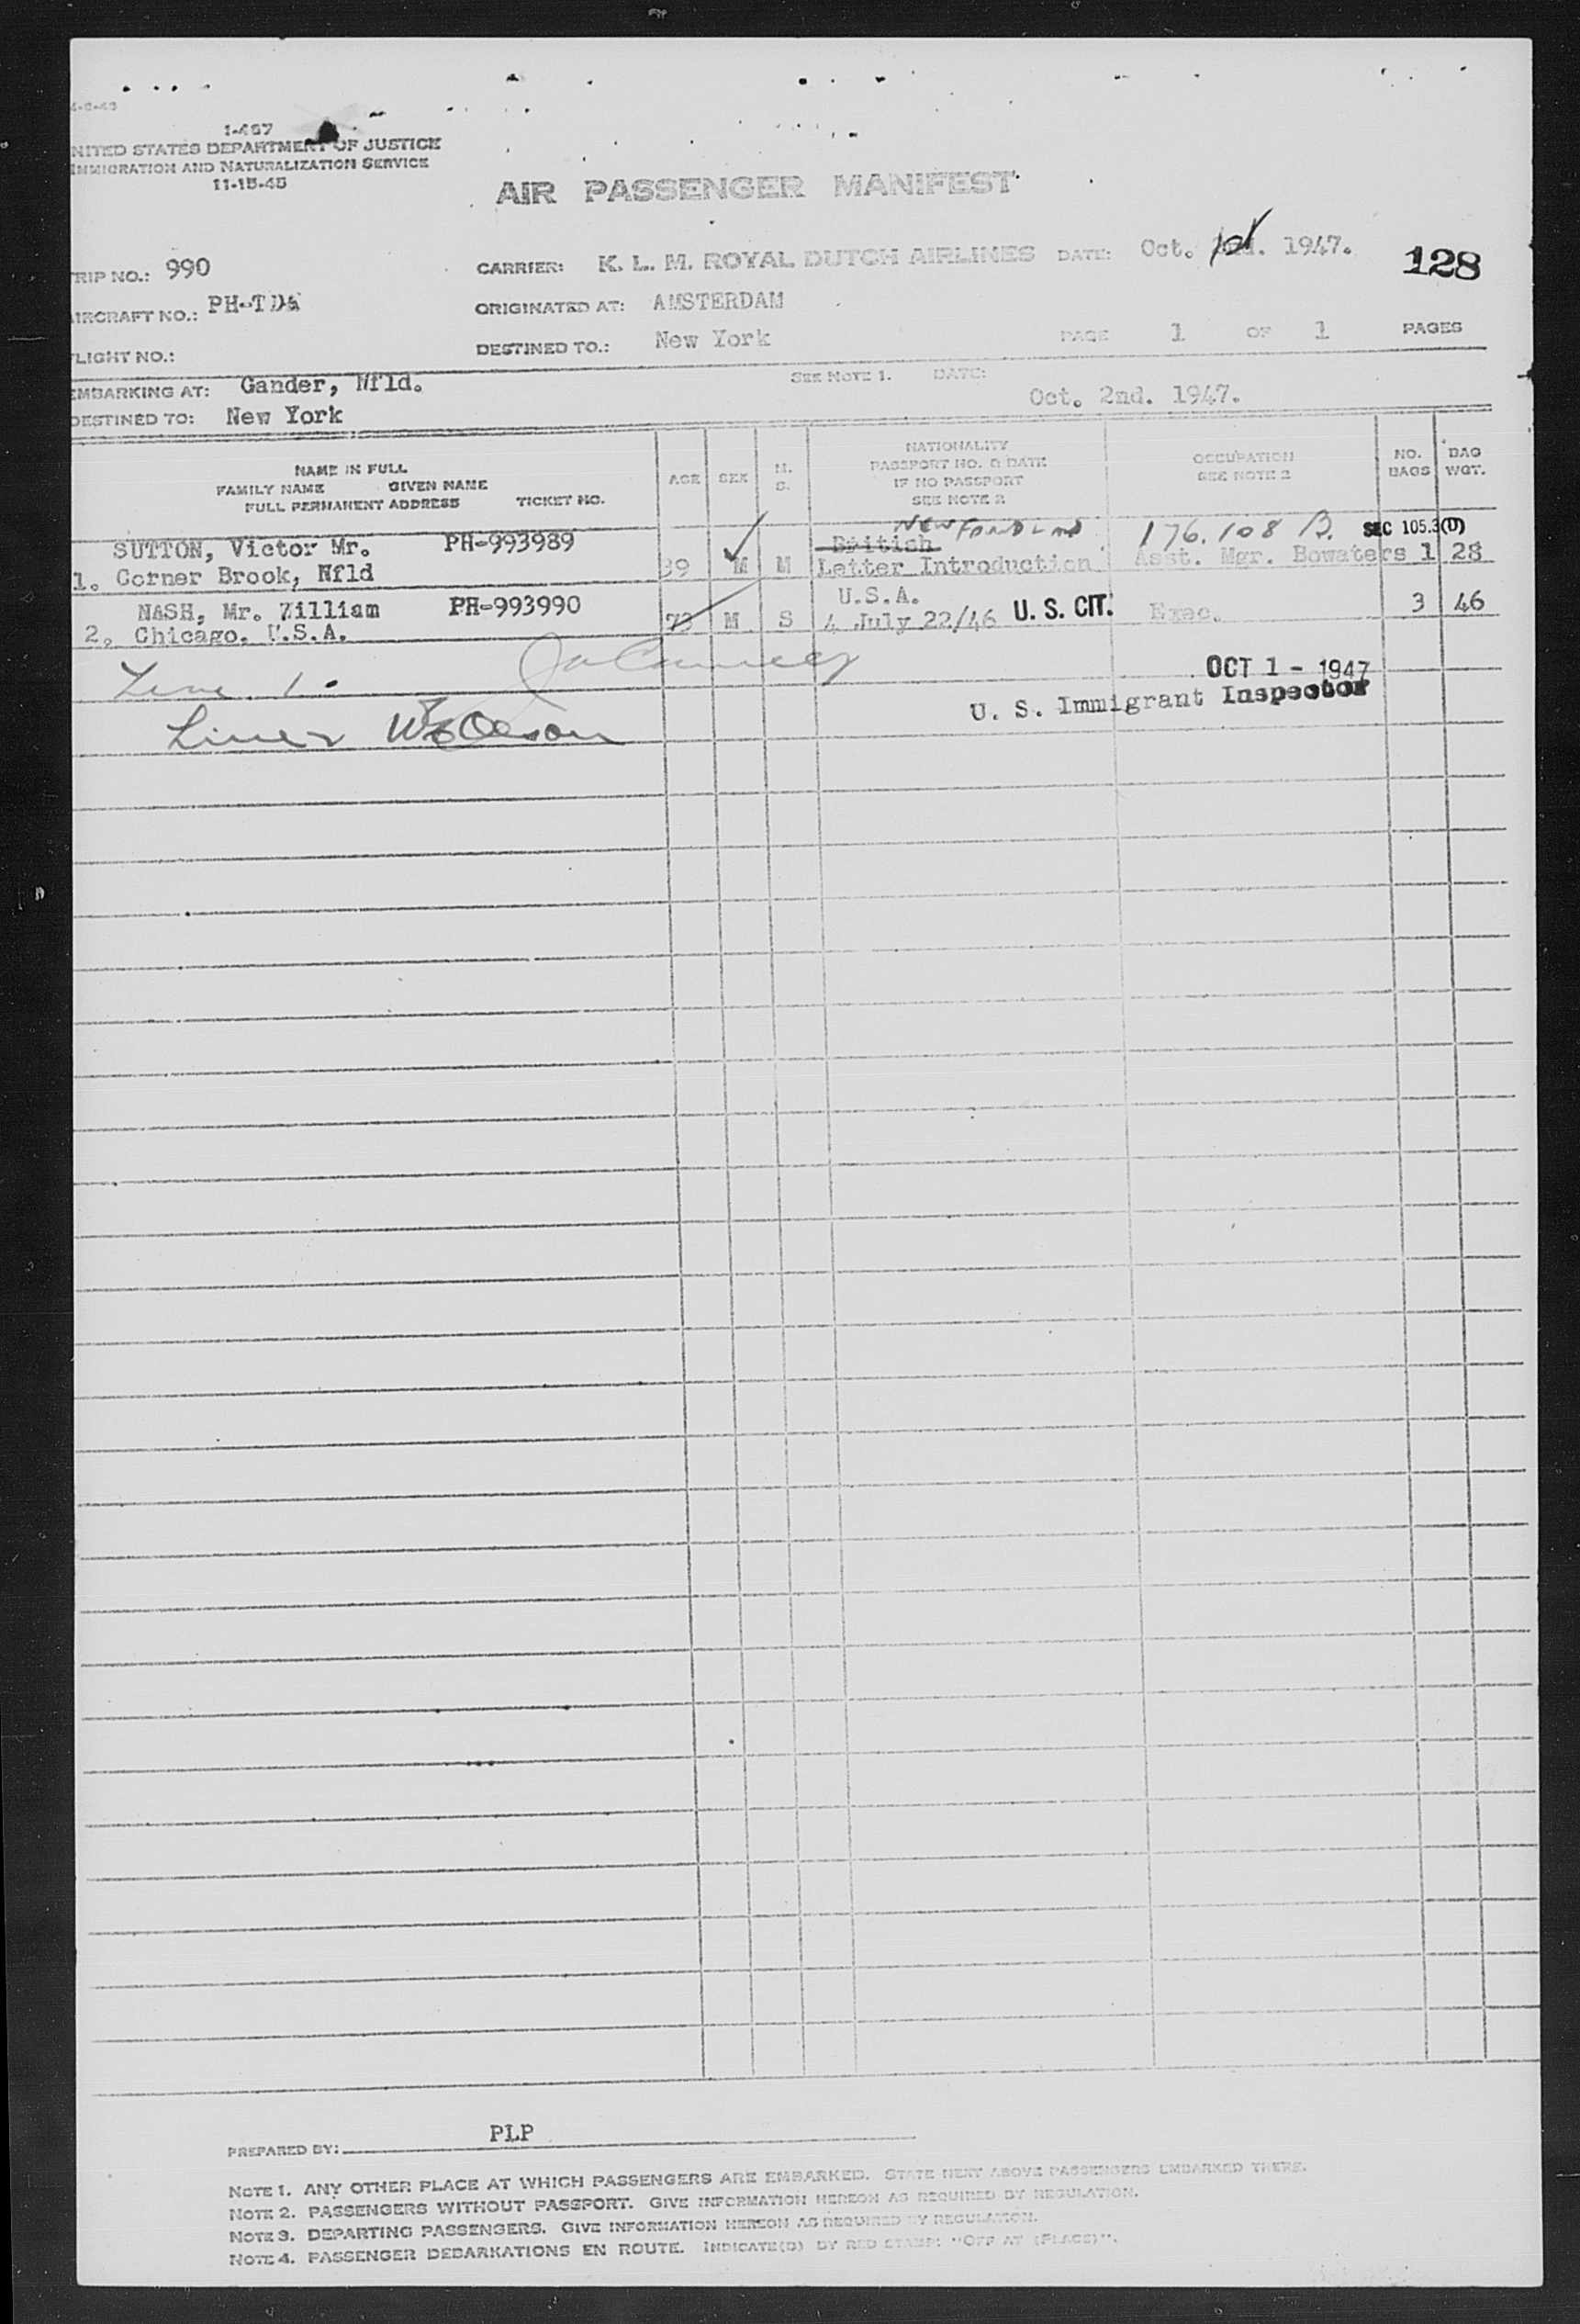 4-6-46
I-467
NITED STATES DEPARTMENT OF JUSTICE
IMMIGRATION AND NATURALIZATION SERVICE
11-15-45
AIR PASSENGER MANIFEST
RIP NO.: 990 CARRIER: K. L. M. ROYAL DUTCH AIRLINES DATE: Oct. 1st 1947. 128
IRCRAFT NO.: PH-TDA ORIGINATED AT: AMSTERDAM
LIGHT NO.: DESTINED TO.: New York PAGE 1 OF 1 PAGES
EMBARKING AT: Gander, Nfld. SEE NOTE 1. DATE: Oct. 2nd. 1947.
DESTINED TO: New York
NAME IN FULL
FAMILY NAME GIVEN NAME
FULL PERMANENT ADDRESS TICKET NO.
AGE SEX M. S.
NATIONALITY
PASSPORT NO. & DATE
IF NO PASSPORT
SEE NOTE 2
OCCUPATION
SEE NOTE 2
NO. BAGS
BAG WGT.
NEWFONDLND 176.108 B. SEC 105.3(D)
SUTTON, Victor Mr. PH-993989 British
1. Corner Brook, Nfld 39 M M Letter Introduction Asst. Mgr. Bowaters 1 28
NASH, Mr. Zilliam PH-993990 U.S.A.
2. Chicago. U.S.A. 73 M S 4 July 22/46 U. S. CIT. Exec. 3 46
Line 1.
OCT 1 - 1947
U. S. Immigrant Inspector
Line 2
PREPARED BY: PLP
NOTE 1. ANY OTHER PLACE AT WHICH PASSENGERS ARE EMBARKED. STATE NEXT ABOVE PASSENGERS EMBARKED THERE.
NOTE 2. PASSENGERS WITHOUT PASSPORT. GIVE INFORMATION HEREON AS REQUIRED BY REGULATION.
NOTE 3. DEPARTING PASSENGERS. GIVE INFORMATION HEREON AS REQUIRED BY REGULATION.
NOTE 4. PASSENGER DEBARKATIONS EN ROUTE. INDICATE(D) BY RED STAMP: "OFF AT (PLACE)".